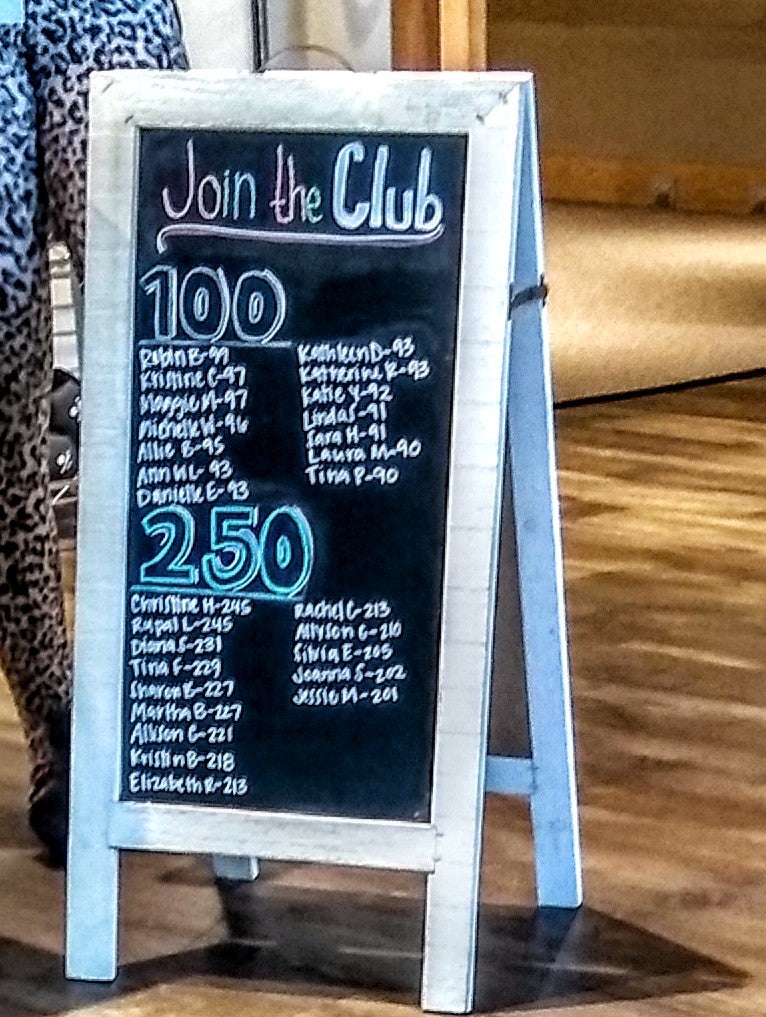 Join the Club
100
Robin B-99
Kristine C-97
Maggie M-97
Michelle W-96
Allie B-95
Ann W L-93
Danielle E-93
Kathleen D-93
Katherine R-93
Katie Y-92
Linda S-91
Sara H-91
Laura M-90
Tina P-90
250
Christine H-245
Rupal L-245
Diana S-231
Tina F-229
Sharon B-227
Martha B-227
Allyson G-221
Kristin B-218
Elizabeth R-213
Rachel G-213
Allyson G-210
Silvia E-205
Joanna S-202
Jessie M-201